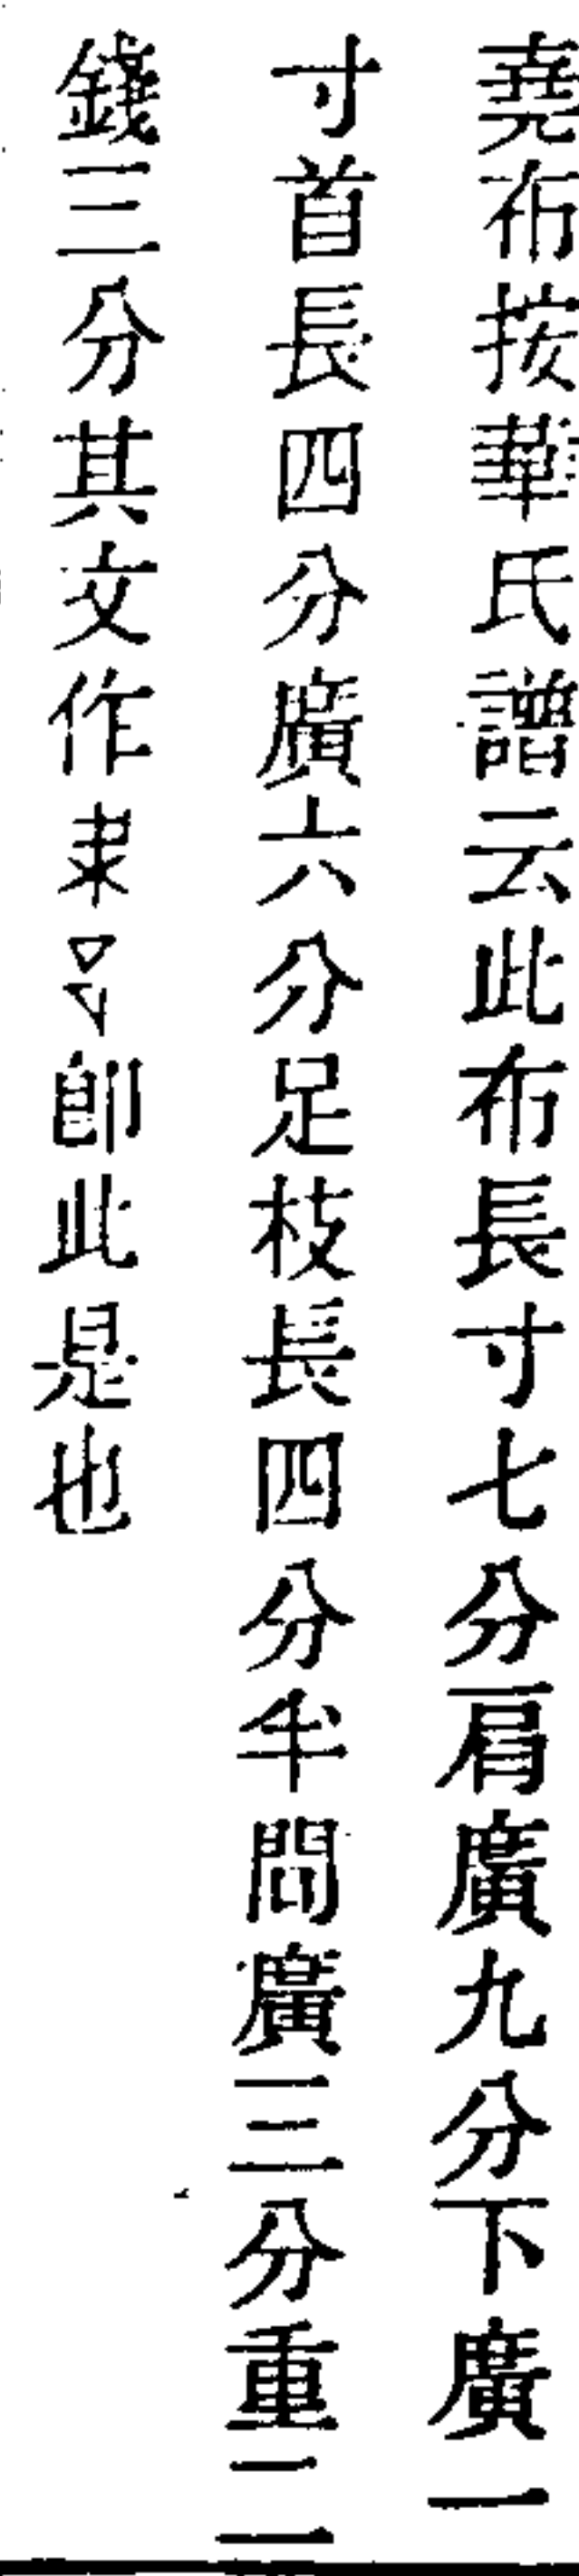 堯布按華氏譜云此布長寸七分肩廣九分下廣一
寸首長四分廣六分足枝長四分半問廣三分重二
錢三分其文作即此是也